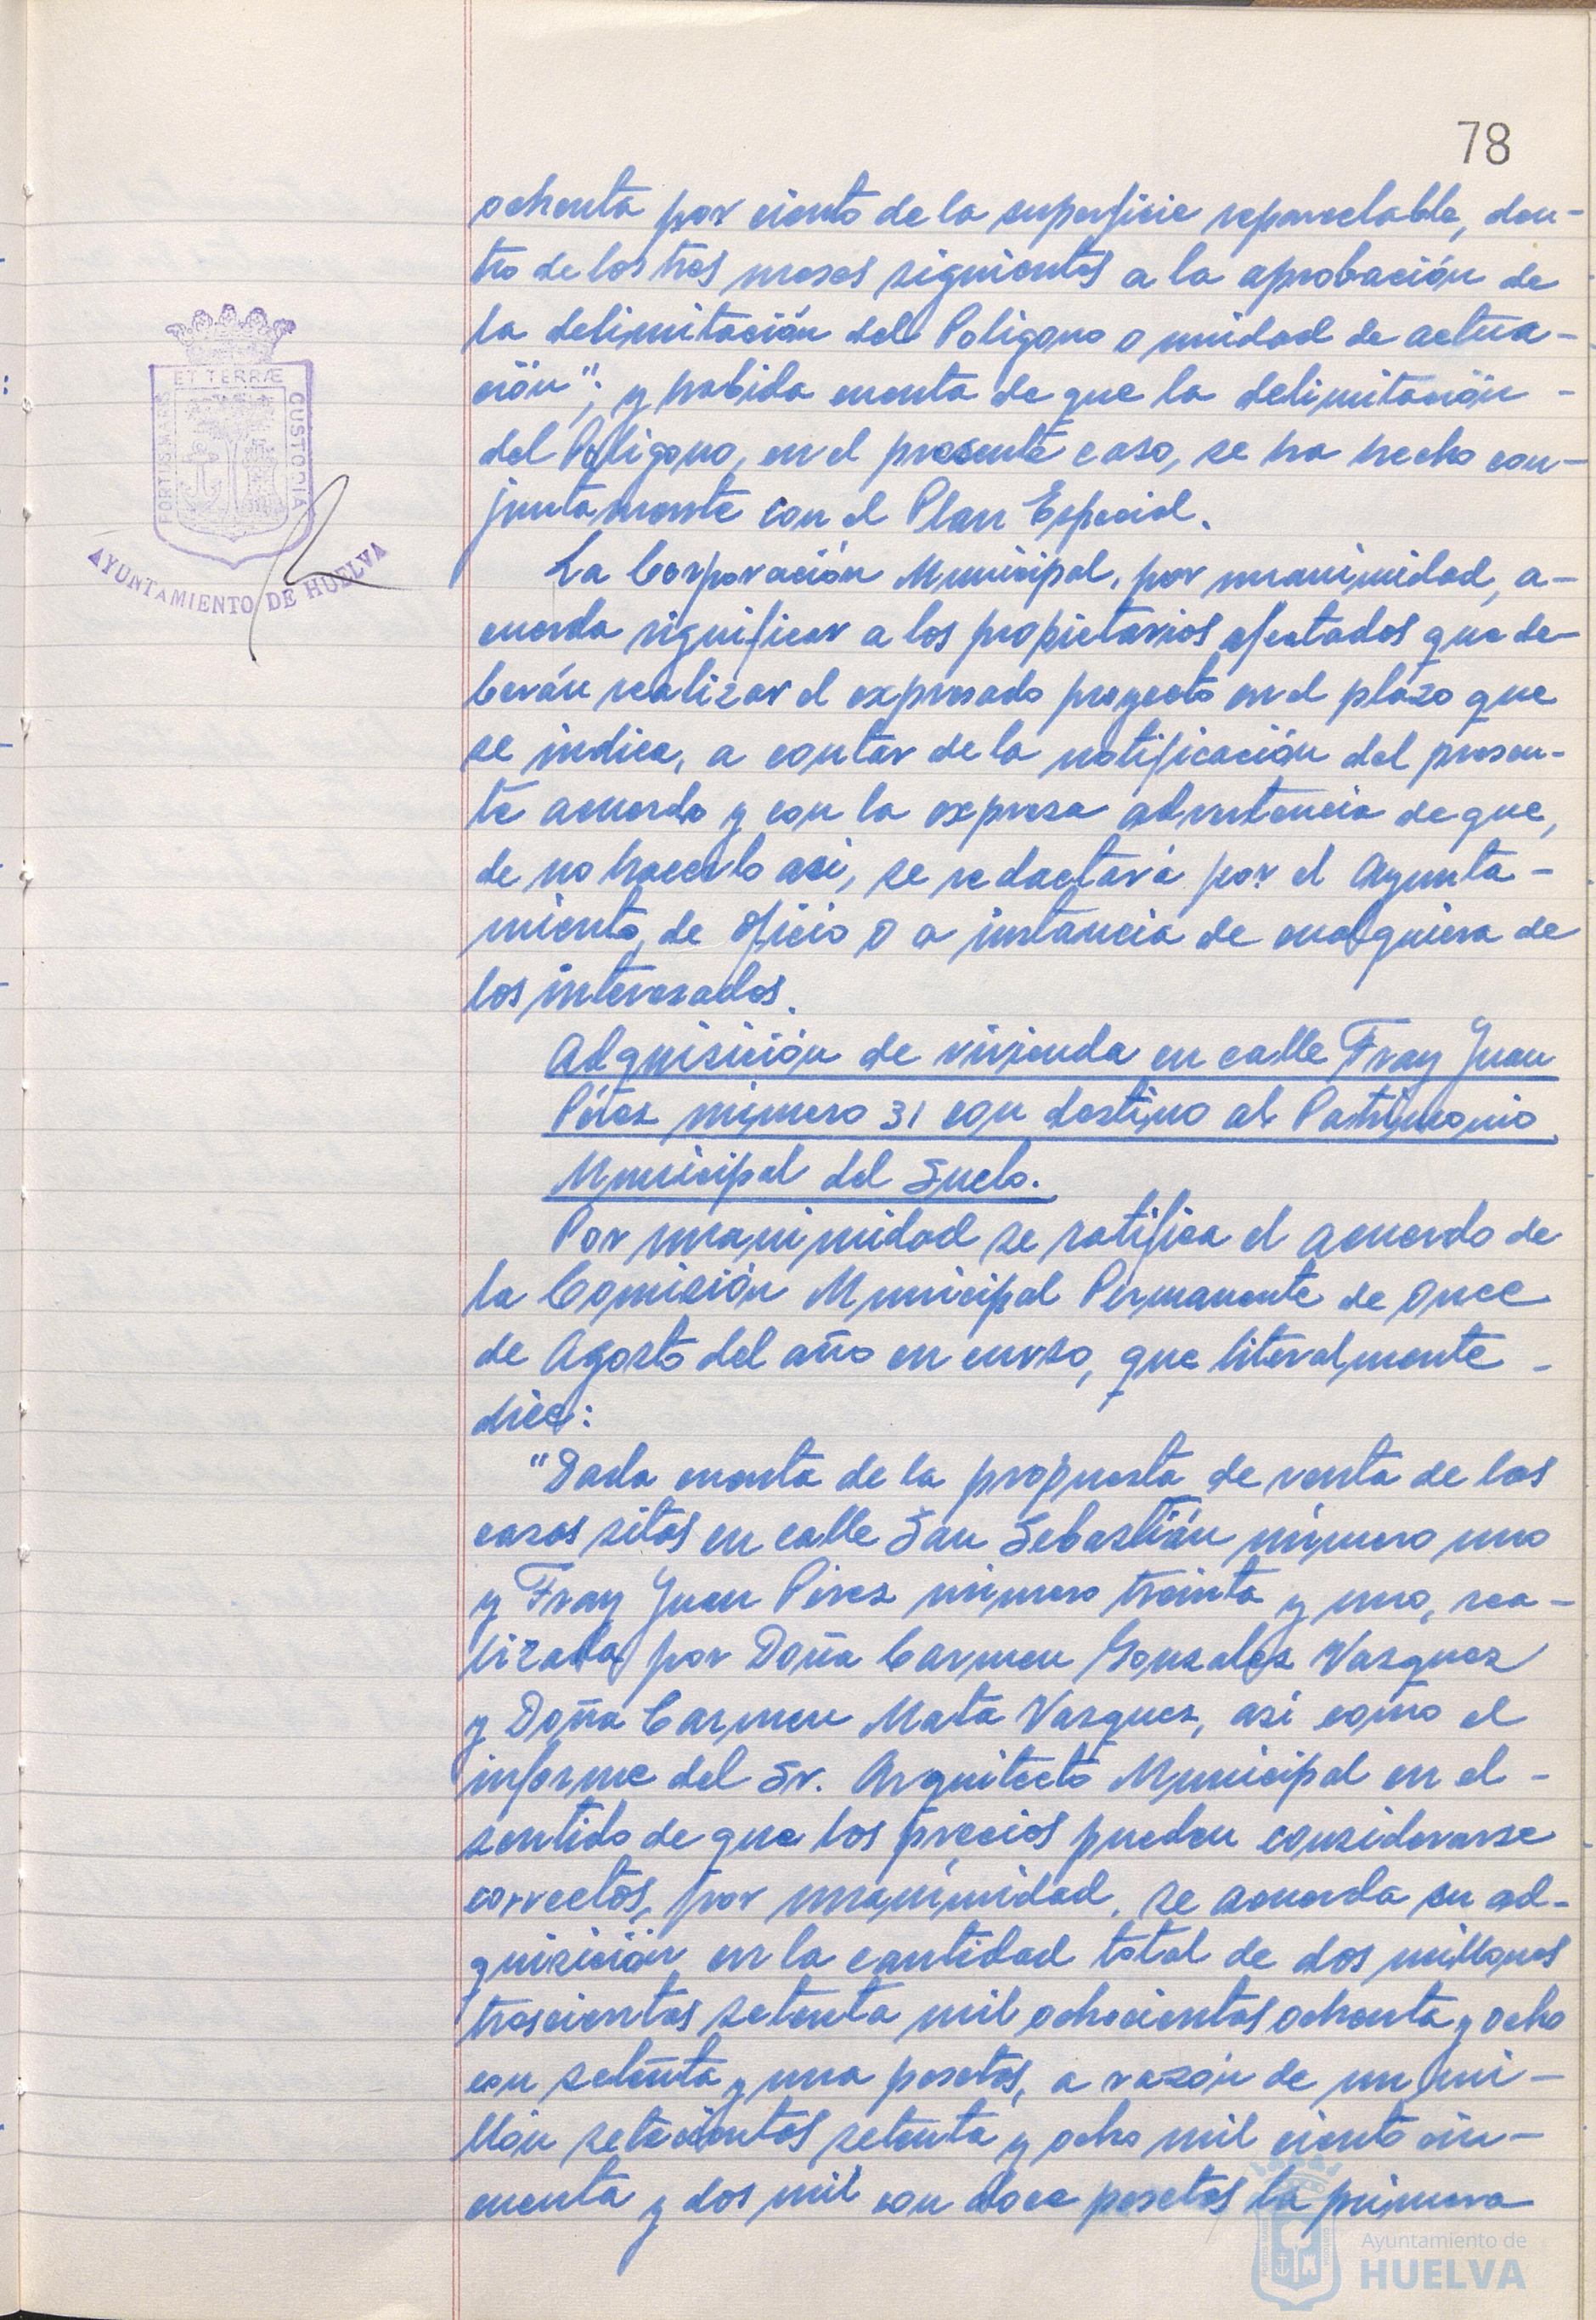 78
ochenta por ciento de la superficie reparcelable, den-
tro de los tres meses siguientes a la aprobación de
la delimitación del Poligono o unidad de actua-
ción"; y habida cuenta de que la delimitación -
del Poligono, en el presente caso, se ha hecho con-
juntamente con el Plan Especial.
La Corporación Municipal, por unanimidad, a-
cuerda significar a los propietarios afectados que de-
berán realizar el expresado proyecto en el plazo que
se indica, a contar de la notificación del presen-
te acuerdo y con la expresa advertencia de que,
de no hacerlo asi, se redactará por el Ayunta-
miento, de oficio o a instancia de cualquiera de
los interesados.
Adquisición de vivienda en calle Fray Juan
Pérez número 31 con destino al Patrimonio
Municipal del Suelo.
Por unanimidad se ratifica el acuerdo de
la Comisión Municipal Permanente de once
de Agosto del año en curso, que literalmente -
dice:
"Dada cuenta de la propuesta de venta de las
casas sitas en calle San Sebastián número uno
y Fray Juan Pérez número treinta y uno, rea-
lizada por Doña Carmen Gonzalez Vazquez
y Doña Carmen Mata Vazquez, asi como el
informe del Sr. Arquitecto Municipal en el -
sentido de que los precios pueden considerarse
correctos, por unanimidad, se acuerda su ad-
quisición en la cantidad total de dos millones
trescientas setenta mil ochocientas ochenta y ocho
con setenta y una pesetas, a razón de un mi-
llón setecientas setenta y ocho mil ciento cin-
cuenta y dos mil con doce pesetas la primera
PORTUS MARIS ET TERRÆ CUSTODIA
AYUNTAMIENTO DE HUELVA
Ayuntamiento de
HUELVA